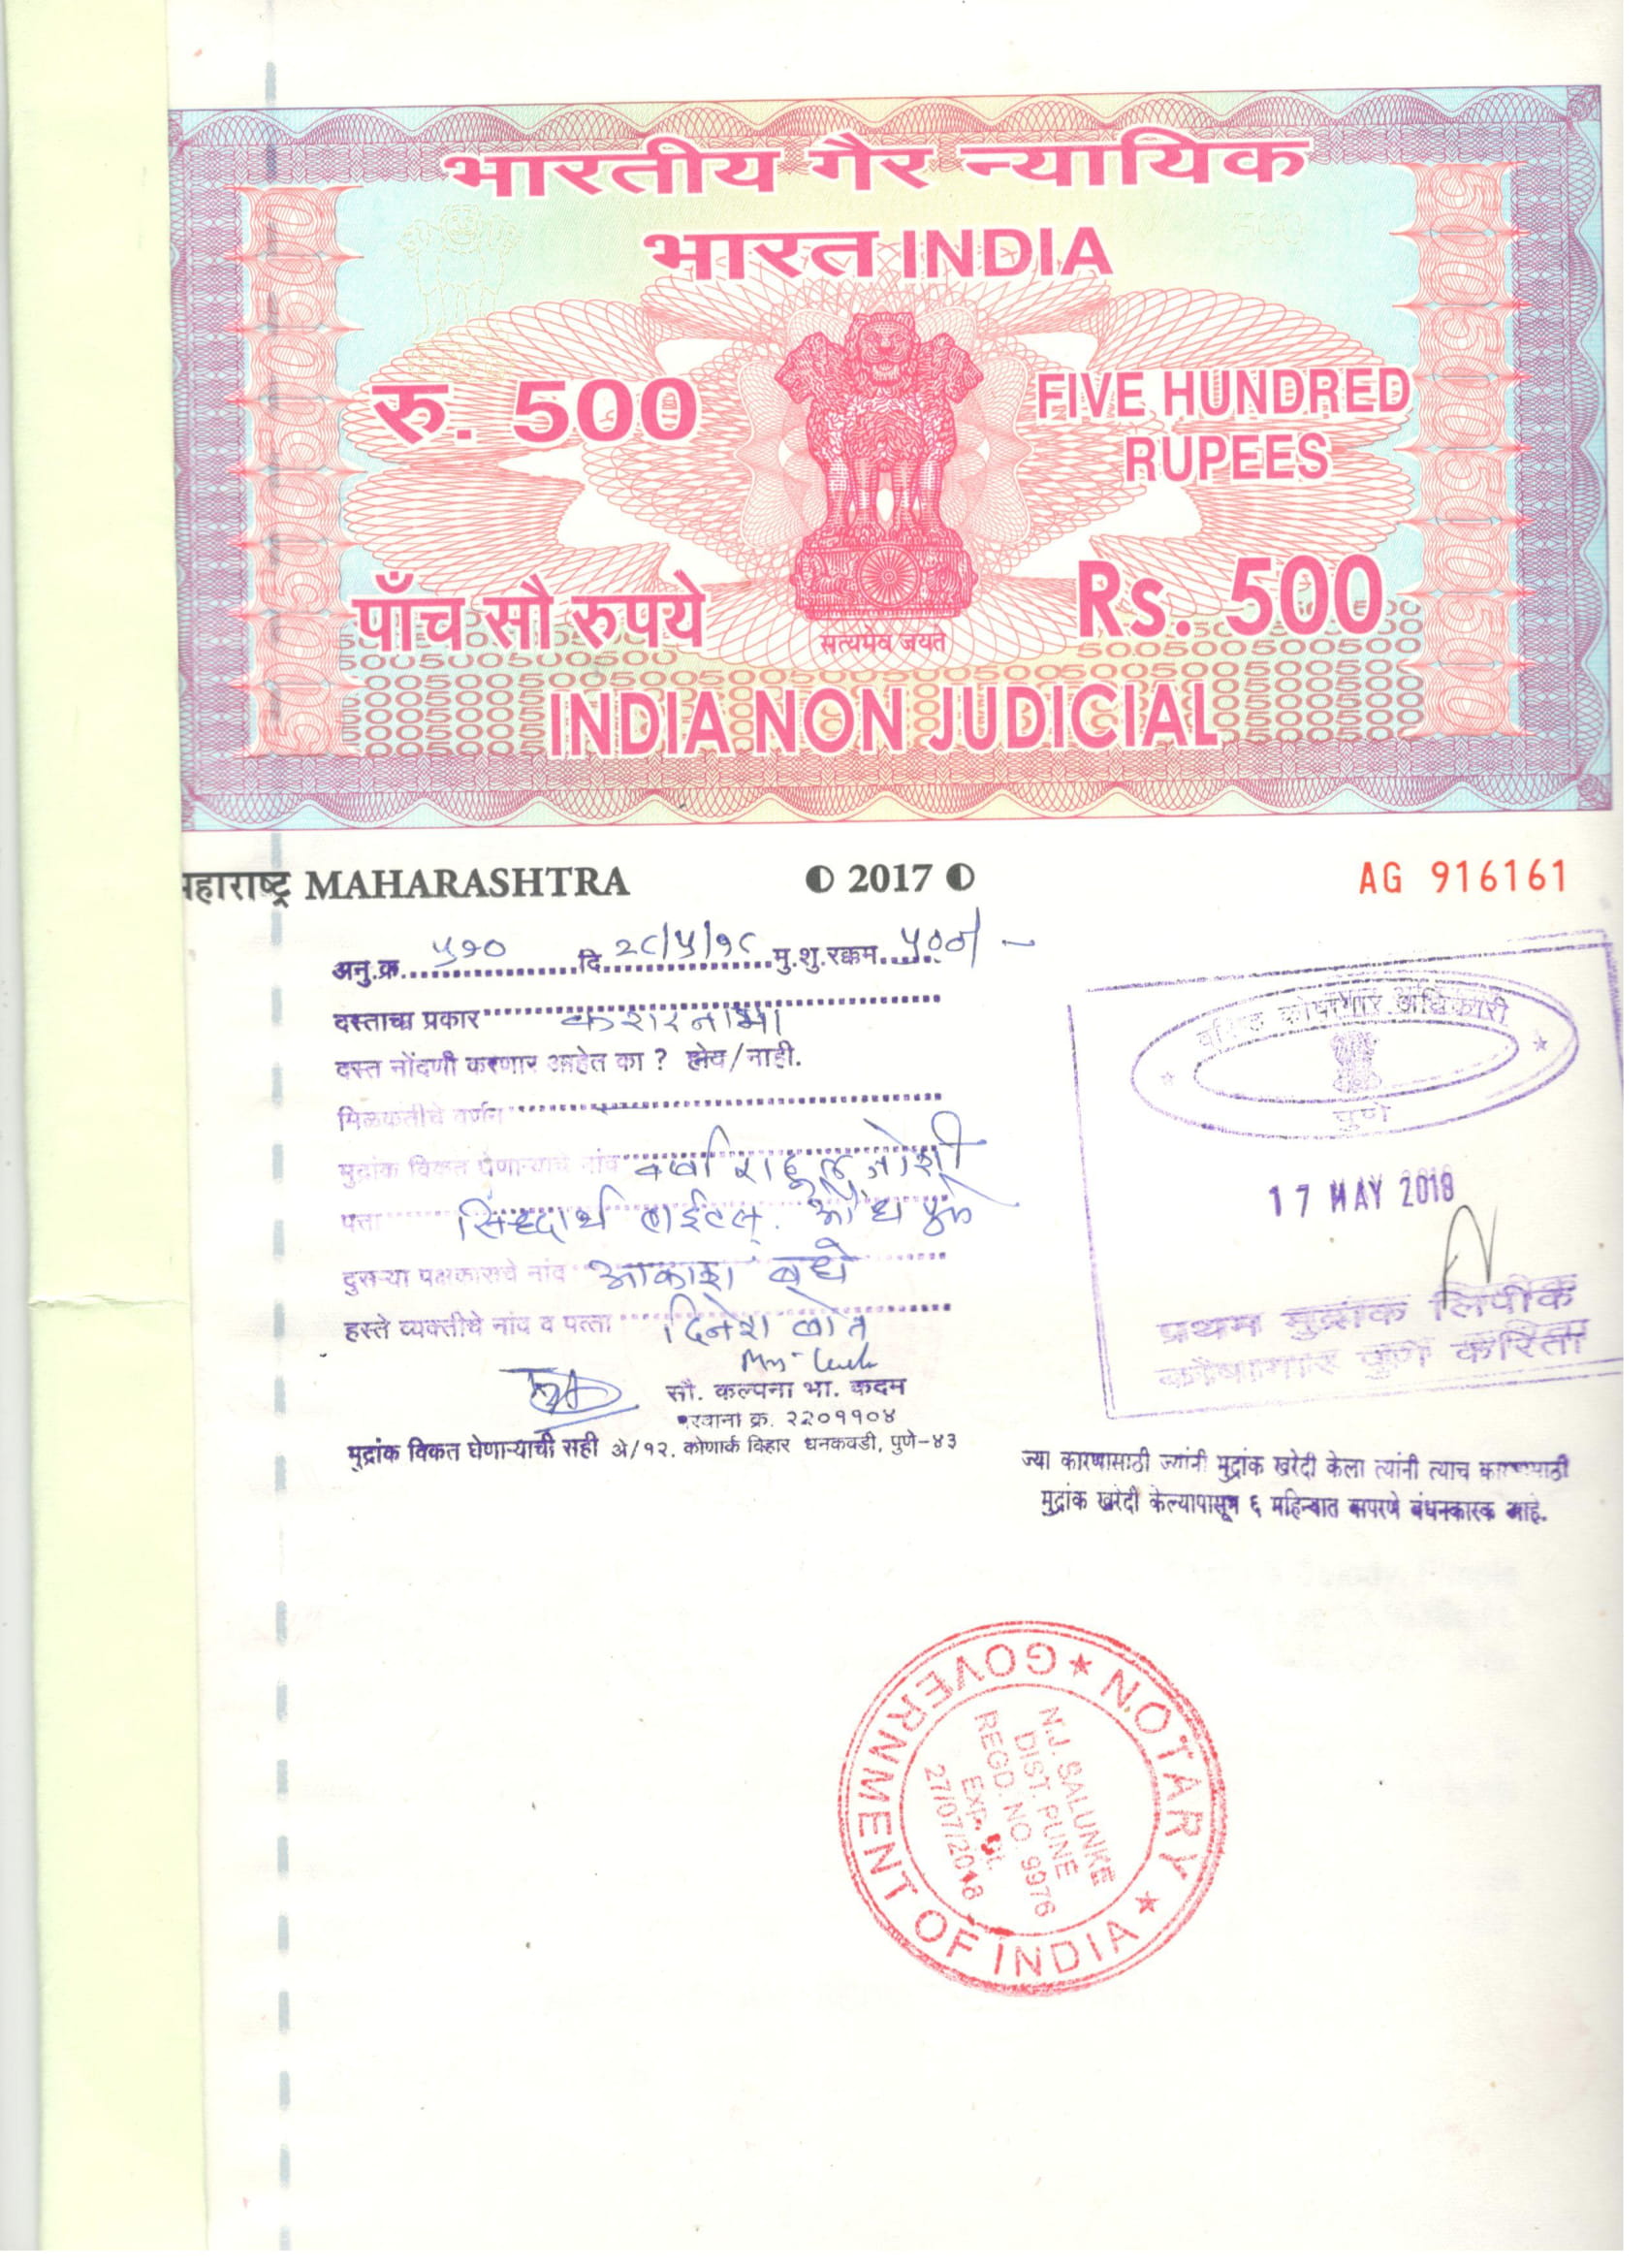 भारतीय गैर न्यायिक
भारत INDIA
रु. 500
FIVE HUNDRED
RUPEES
पाँच सौ रुपये
Rs. 500
सत्यमेव जयते
INDIA NON JUDICIAL
महाराष्ट्र MAHARASHTRA
2017
AG 916161
अनु.क्र. ५१० दि. २८/५/१८ मु.शु.रक्कम. ५००/-
दस्ताचा प्रकार करारनामा
दस्त नोंदणी करणार आहेत का ? होय/नाही.
मिळकतीचे वर्णन
मुद्रांक विकत घेणाऱ्याचे नांव वर्षा राहूल जोशी
पत्ता सिध्दार्थ औंध पुणे
दुसऱ्या पक्षकाराचे नांव आकाश
हस्ते व्यक्तीचे नांव व पत्ता दिनेश
सौ. कल्पना भा. कदम
परवाना क्र. २२०११०४
मुद्रांक विकत घेणाऱ्याची सही अे/१२. कोणार्क विहार धनकवडी, पुणे-४३
वरिष्ठ कोषागार अधिकारी
पुणे
17 MAY 2018
प्रथम मुद्रांक लिपीक
कोषागार पुणे करिता
ज्या कारणासाठी ज्यांनी मुद्रांक खरेदी केला त्यांनी त्याच कारणासाठी
मुद्रांक खरेदी केल्यापासून ६ महिन्यात वापरणे बंधनकारक आहे.
NOTARY
GOVERNMENT OF INDIA
N.J. SALUNKE
DIST. PUNE
REGD. NO. 9976
EXP. Dt.
27/07/2018